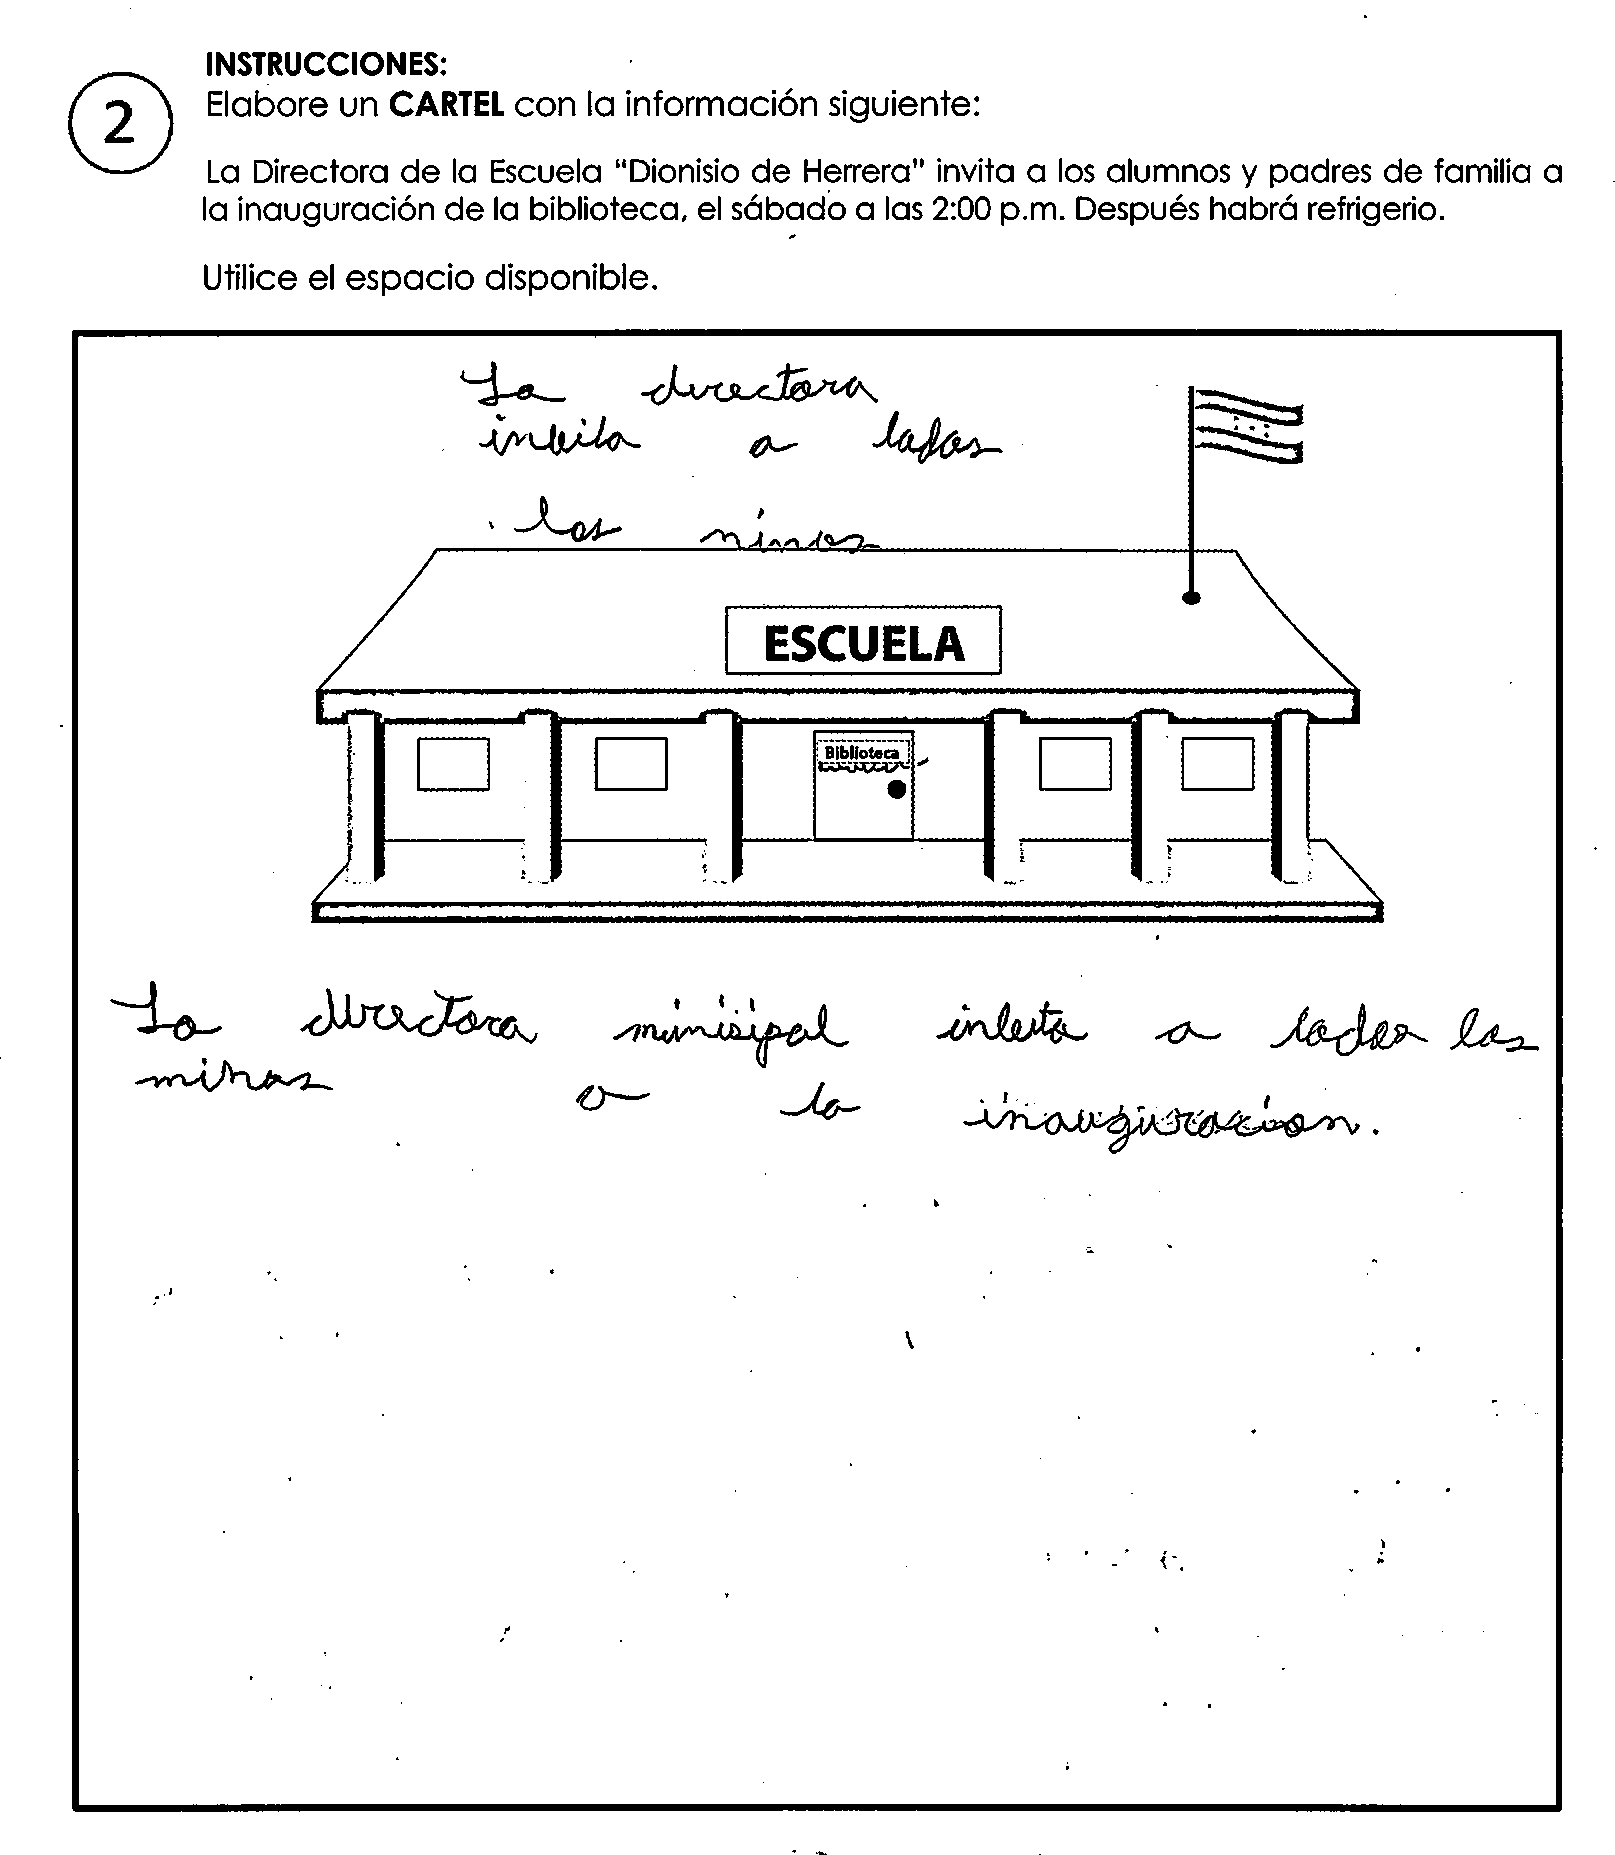 INSTRUCCIONES:
2
Elabore un CARTEL con la información siguiente:
La Directora de la Escuela "Dionisio de Herrera" invita a los alumnos y padres de familia a
la inauguración de la biblioteca, el sábado a las 2:00 p.m. Después habrá refrigerio.
Utilice el espacio disponible.
La directora
inbita a todos
los ninos
ESCUELA
Biblioteca
La directora minisipal inbita a todos los
ninos a la inauguracion.